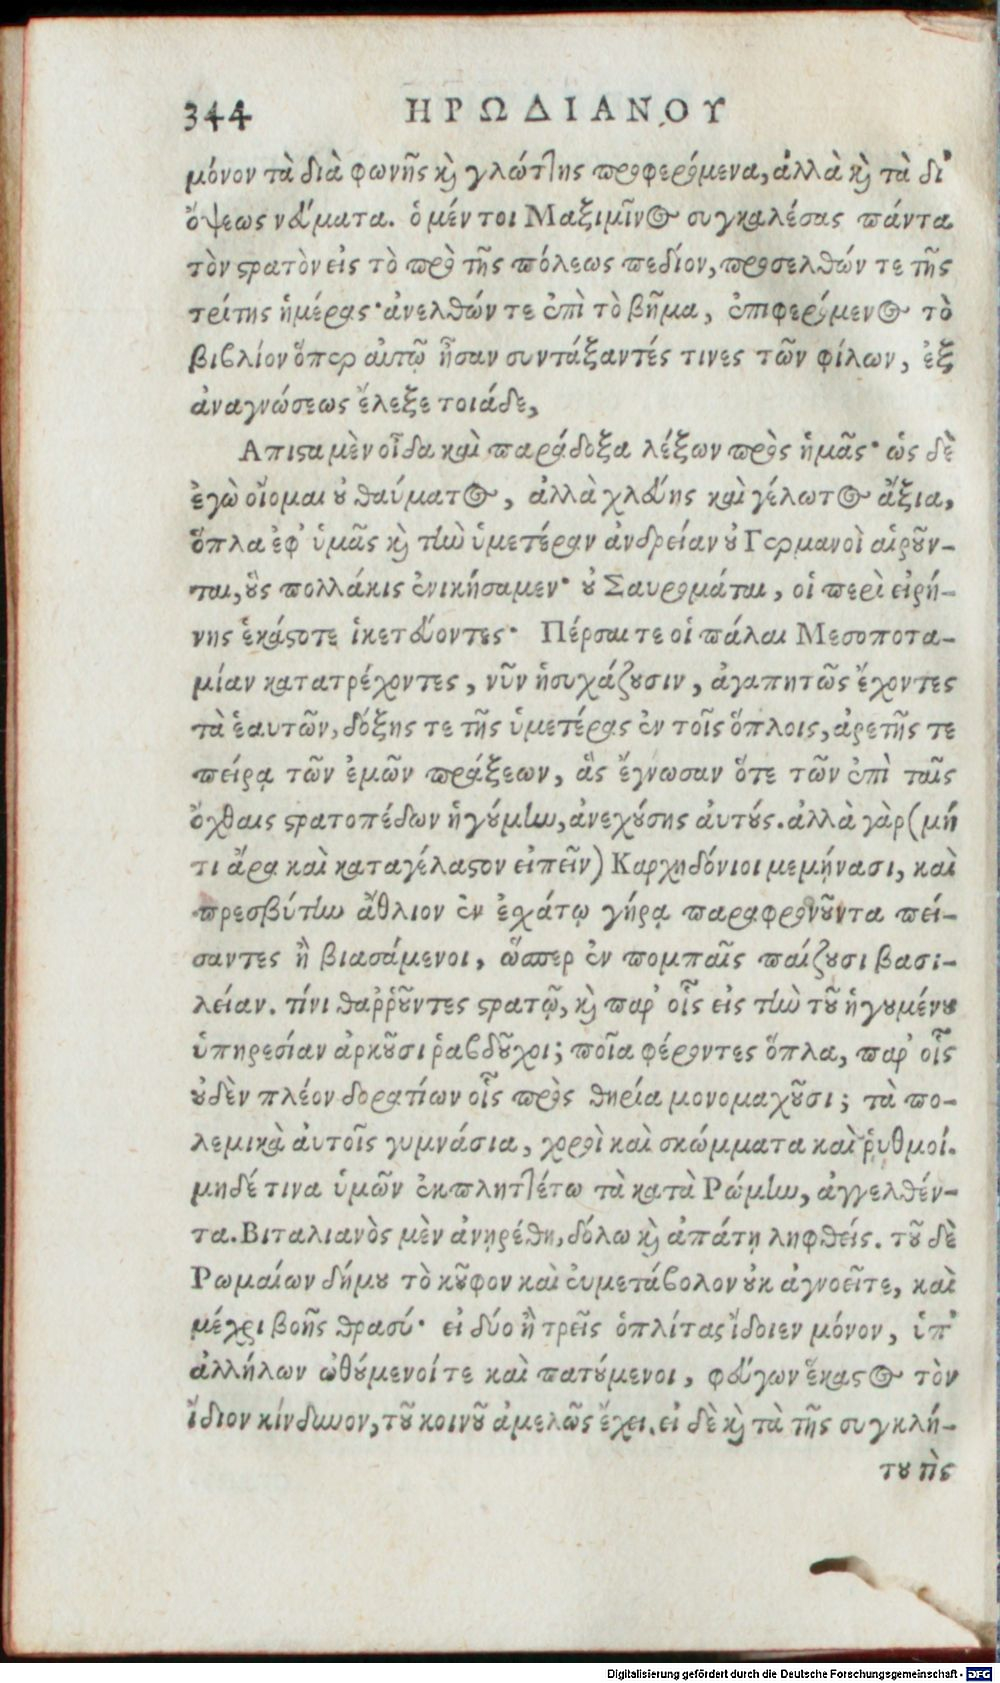 344 ΗΡΩΔΙΑΝΟΥ
μόνον τὰ διὰ φωνῆς κὶ γλώττης προφερόμενα, ἀλλὰ κὶ τὰ δι'
ὄψεως νεύματα. ὁ μέν τοι Μαξιμῖνος συγκαλέσας πάντα
τὸν στρατὸν εἰς τὸ πρὸ τῆς πόλεως πεδίον, προσελθών τε τῆς
τρίτης ἡμέρας· ἀνελθών τε ἐπὶ τὸ βῆμα, ἐπιφερόμενος τὸ
βιβλίον ὅπερ αὐτῷ ἦσαν συντάξαντές τινες τῶν φίλων, ἐξ
ἀναγνώσεως ἔλεξε τοιάδε,
Απιστα μὲν οἶδα καὶ παράδοξα λέξων πρὸς ἡμᾶς· ὡς δὲ
ἐγὼ οἴομαι οὐ θαύματος, ἀλλὰ χλεύης καὶ γέλωτος ἄξια,
ὅπλα ἐφ' ὑμᾶς κὶ τὴν ὑμετέραν ἀνδρείαν οὐ Γερμανοὶ αἰροῦν-
ται, οὓς πολλάκις ἐνικήσαμεν· οὐ Σαυρομάται, οἱ περὶ εἰρή-
νης ἑκάστοτε ἱκετεύοντες· Πέρσαι τε οἱ πάλαι Μεσοποτα-
μίαν κατατρέχοντες, νῦν ἡσυχάζουσιν, ἀγαπητῶς ἔχοντες
τὰ ἑαυτῶν, δόξης τε τῆς ὑμετέρας ἐν τοῖς ὅπλοις, ἀρετῆς τε
πείρᾳ τῶν ἐμῶν πράξεων, ἃς ἔγνωσαν ὅτε τῶν ἐπὶ ταῖς
ὄχθαις στρατοπέδων ἡγούμην, ἀνεχούσης αὐτούς. ἀλλὰ γὰρ (μή
τι ἄρα καὶ καταγέλαστον εἰπεῖν) Καρχηδόνιοι μεμήνασι, καὶ
πρεσβύτην ἄθλιον ἐν ἐσχάτῳ γήρᾳ παραφρονοῦντα πεί-
σαντες ἢ βιασάμενοι, ὥσπερ ἐν πομπαῖς παίζουσι βασι-
λείαν. τίνι θαῤῥοῦντες στρατῷ, κὶ παρ' οἷς εἰς τὴν τοῦ ἡγουμένου
ὑπηρεσίαν ἀρκοῦσι ῥαβδοῦχοι; ποῖα φέροντες ὅπλα, παρ' οἷς
οὐδὲν πλέον δορατίων οἷς πρὸς θηρία μονομαχοῦσι; τὰ πο-
λεμικὰ αὐτοῖς γυμνάσια, χοροὶ καὶ σκώμματα καὶ ῥυθμοί.
μηδέ τινα ὑμῶν ἐκπληττέτω τὰ κατὰ Ρώμην, ἀγγελθέν-
τα. Βιταλιανὸς μὲν ἀνῃρέθη, δόλω κὶ ἀπάτῃ ληφθείς. τοῦ δὲ
Ρωμαίων δήμου τὸ κοῦφον καὶ εὐμετάβολον οὐκ ἀγνοεῖτε, καὶ
μέχρι βοῆς θρασύ· εἰ δύο ἢ τρεῖς ὁπλίτας ἴδοιεν μόνον, ὑπ'
ἀλλήλων ὠθούμενοί τε καὶ πατούμενοι, φεύγων ἕκαστος τὸν
ἴδιον κίνδυνον, τοῦ κοινοῦ ἀμελῶς ἔχει. εἰ δὲ κὶ τὰ τῆς συγκλή-
του τὶς
Digitalisierung gefördert durch die Deutsche Forschungsgemeinschaft - DFG